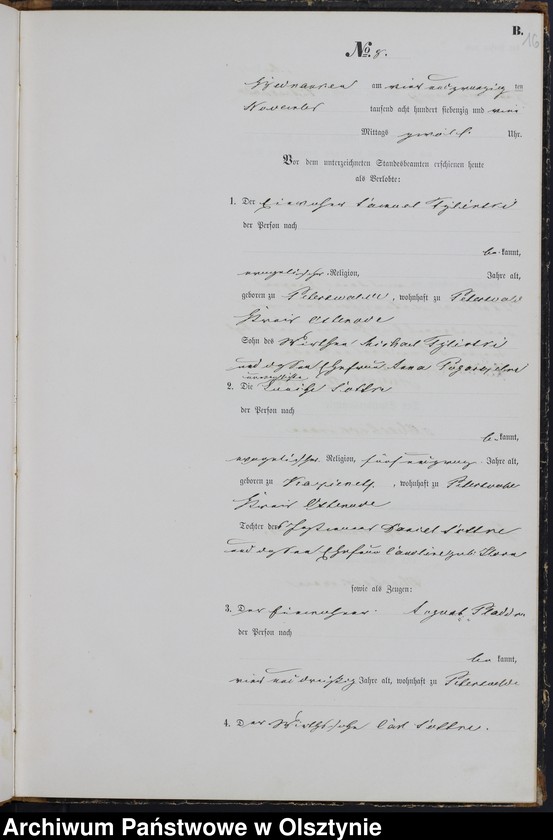 B.
16
No. 8.
am vier und zwanzig ten
November tausend acht hundert siebenzig und vier
Mittags zwölf Uhr.
Vor dem unterzeichneten Standesbeamten erschienen heute
als Verlobte:
1. Der Einwohner Samuel
der Person nach
be kannt,
evangelischer Religion, Jahre alt,
geboren zu Peterswalde, wohnhaft zu Peterswalde
Kreis Osterode
Sohn des Wirthen Michael
und dessen Ehefrau Anna
2. Die
der Person nach
be kannt,
evangelischer Religion, fünf und zwanzig Jahre alt,
geboren zu , wohnhaft zu Peterswalde
Kreis Osterode
Tochter des Daniel
und dessen Ehefrau Caroline geb.
sowie als Zeugen:
3. Der Einwohner August
der Person nach
be kannt,
vier und dreißig Jahre alt, wohnhaft zu Peterswalde
4. Der Wirthssohn Carl
Archiwum Państwowe w Olsztynie